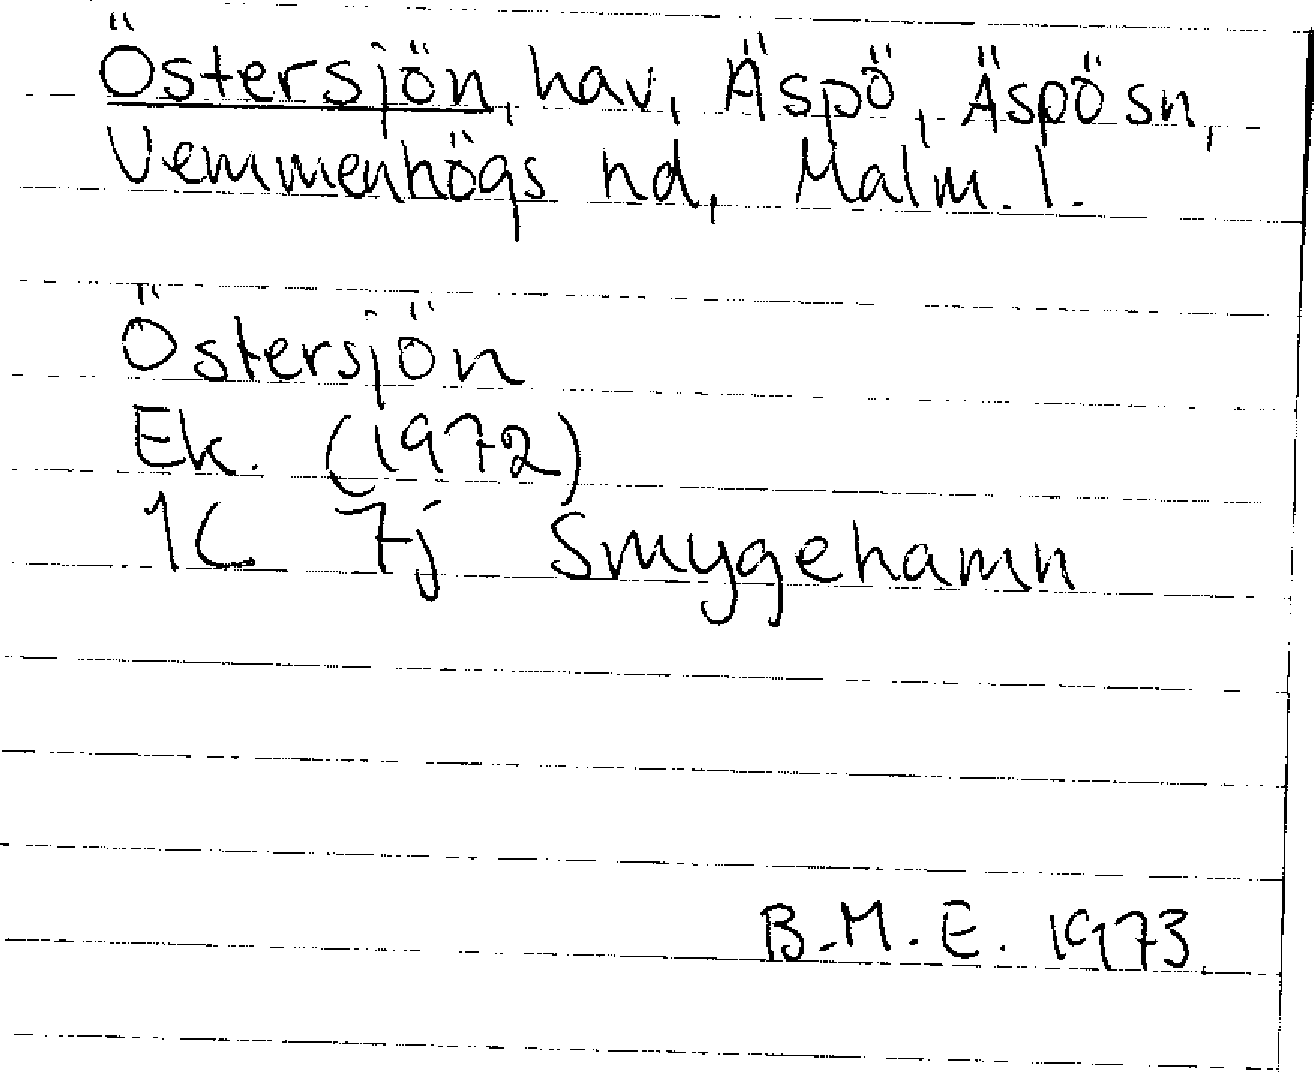 Östersjön, hav, Äspö, Äspö sn,
Vemmenhögs hd, Malm. l.
Östersjön
Ek. (1972)
1C 7j Smygehamn
B.M.E. 1973